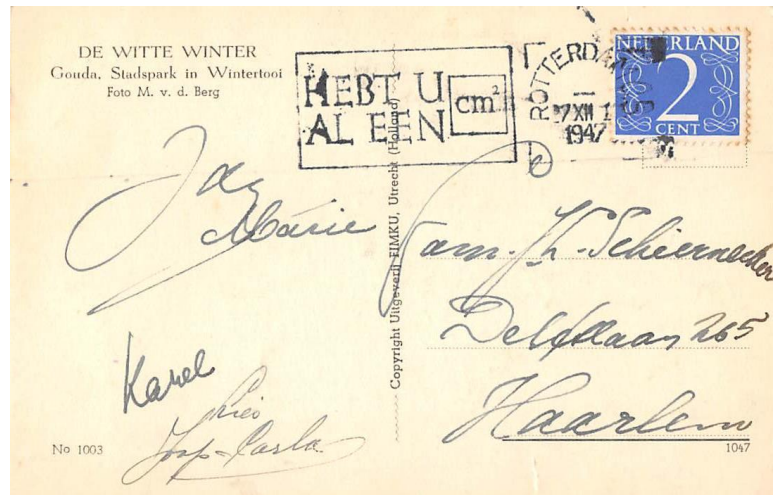 DE WITTE WINTER
Gouda, Stadspark in Wintertooi
Foto M. v. d. Berg
HEBT U
AL EEN
cm²
ROTTERDAM
XII
1947
NEDERLAND
2
CENT
Marie
Karel
Joop-Carla
No 1003
Copyright Uitgeverij FIMKU, Utrecht (Holland)
Fam. Scheernecker
Delftlaan 265
Haarlem
1047